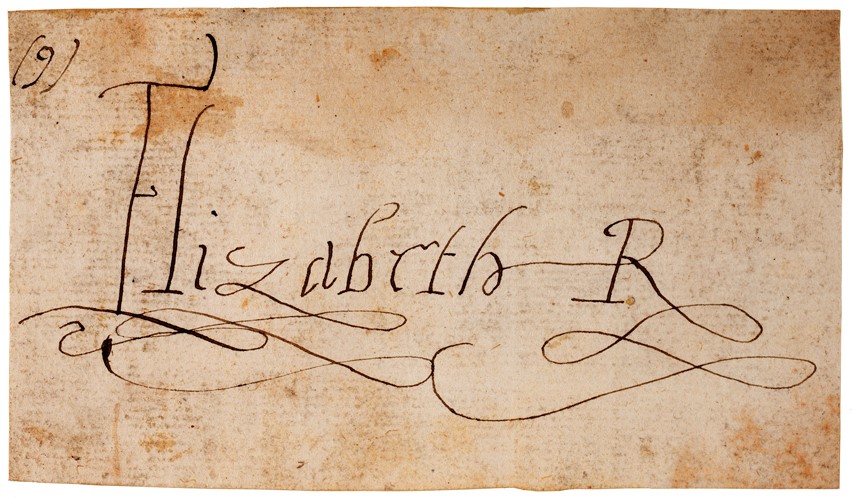 (9)
Elizabeth R